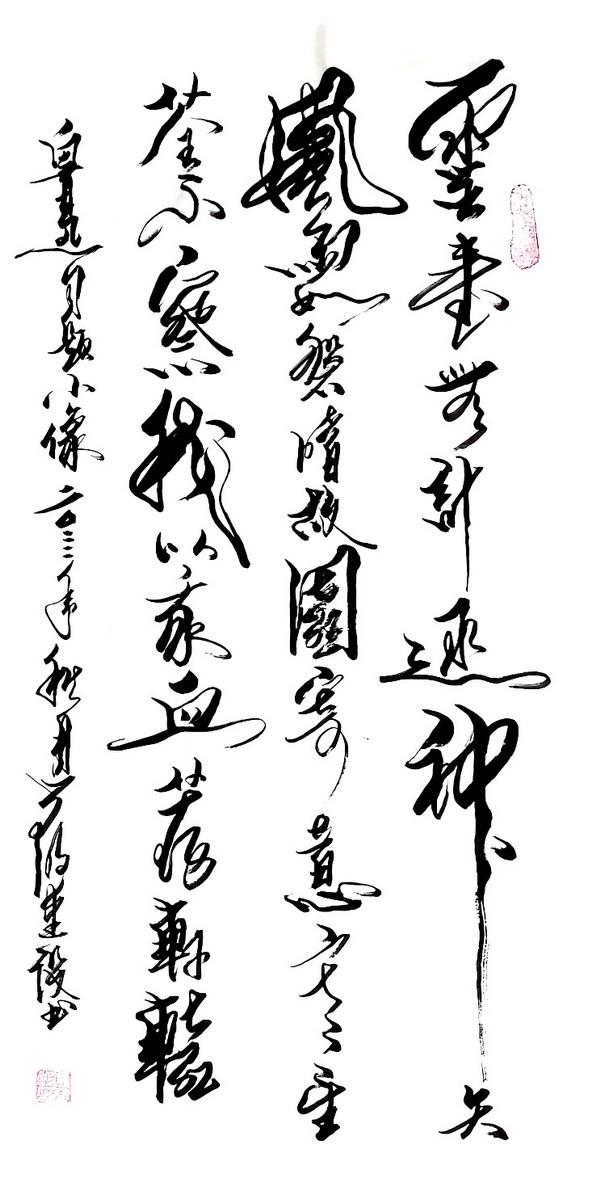 靈臺無計逃神矢
風雨如磐暗故園寄意寒星
荃不察我以我血薦軒轅
魯迅自題小像二〇二三年秋月書